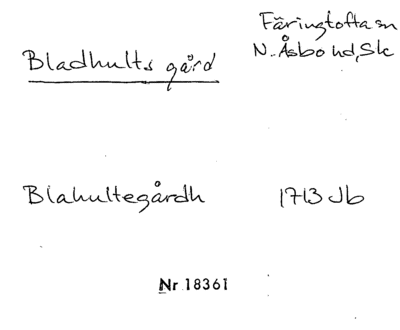 Färingtofta sn
Bladhults gård
N. Åsbo hd, Sk
Blahultegårdh 1713 Jb
Nr 18361